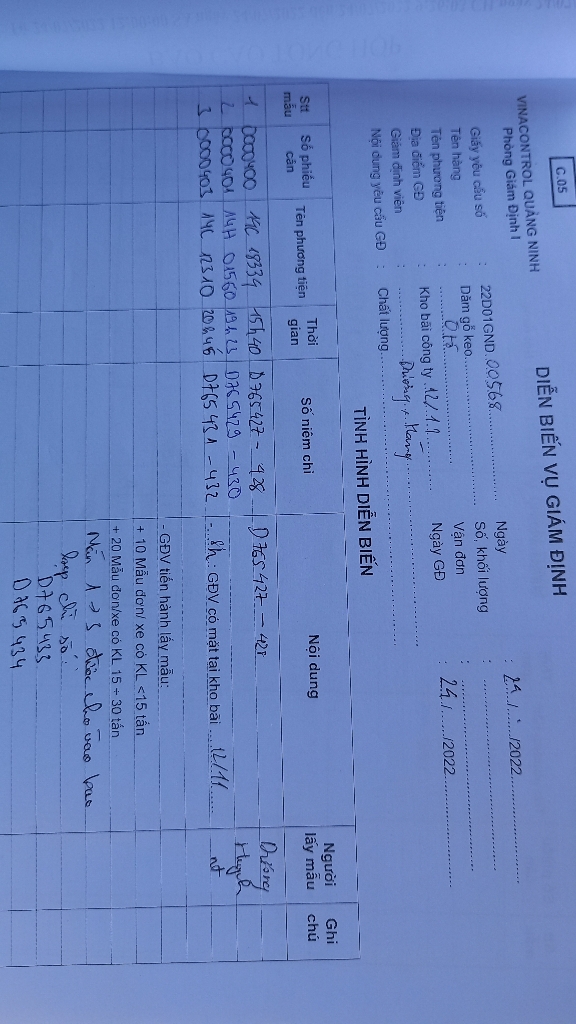 C.05
VINACONTROL QUẢNG NINH
Phòng Giám Định I
DIỄN BIẾN VỤ GIÁM ĐỊNH
Giấy yêu cầu số : 22D01GND.00568 Ngày : 24/.../2022
Tên hàng : Dăm gỗ keo Số, khối lượng :
Tên phương tiện : Ô tô Vận đơn :
Địa điểm GĐ : Kho bãi công ty 12/11 Ngày GĐ : 24/.../2022
Giám định viên : Dương +
Nội dung yêu cầu GĐ : Chất lượng
TÌNH HÌNH DIỄN BIẾN
Stt mẫu Số phiếu cân Tên phương tiện Thời gian Số niêm chì Nội dung Người lấy mẫu Ghi chú
1 0000400 14C 18334 15h40 D765427 - 428 D765427 - 428 Dương
2 0000401 14H 01560 19h23 D765429 - 430 Huỳnh
3 0000403 14C 12310 20h45 D765431 - 432 - 8h : GĐV có mặt tại kho bãi 12/11 nt
- GĐV tiến hành lấy mẫu:
+ 10 Mẫu đơn/ xe có KL <15 tấn
+ 20 Mẫu đơn/xe có KL 15 ÷ 30 tấn
1 → 3 được cho vào bao
kẹp chì số:
D765433
D765434